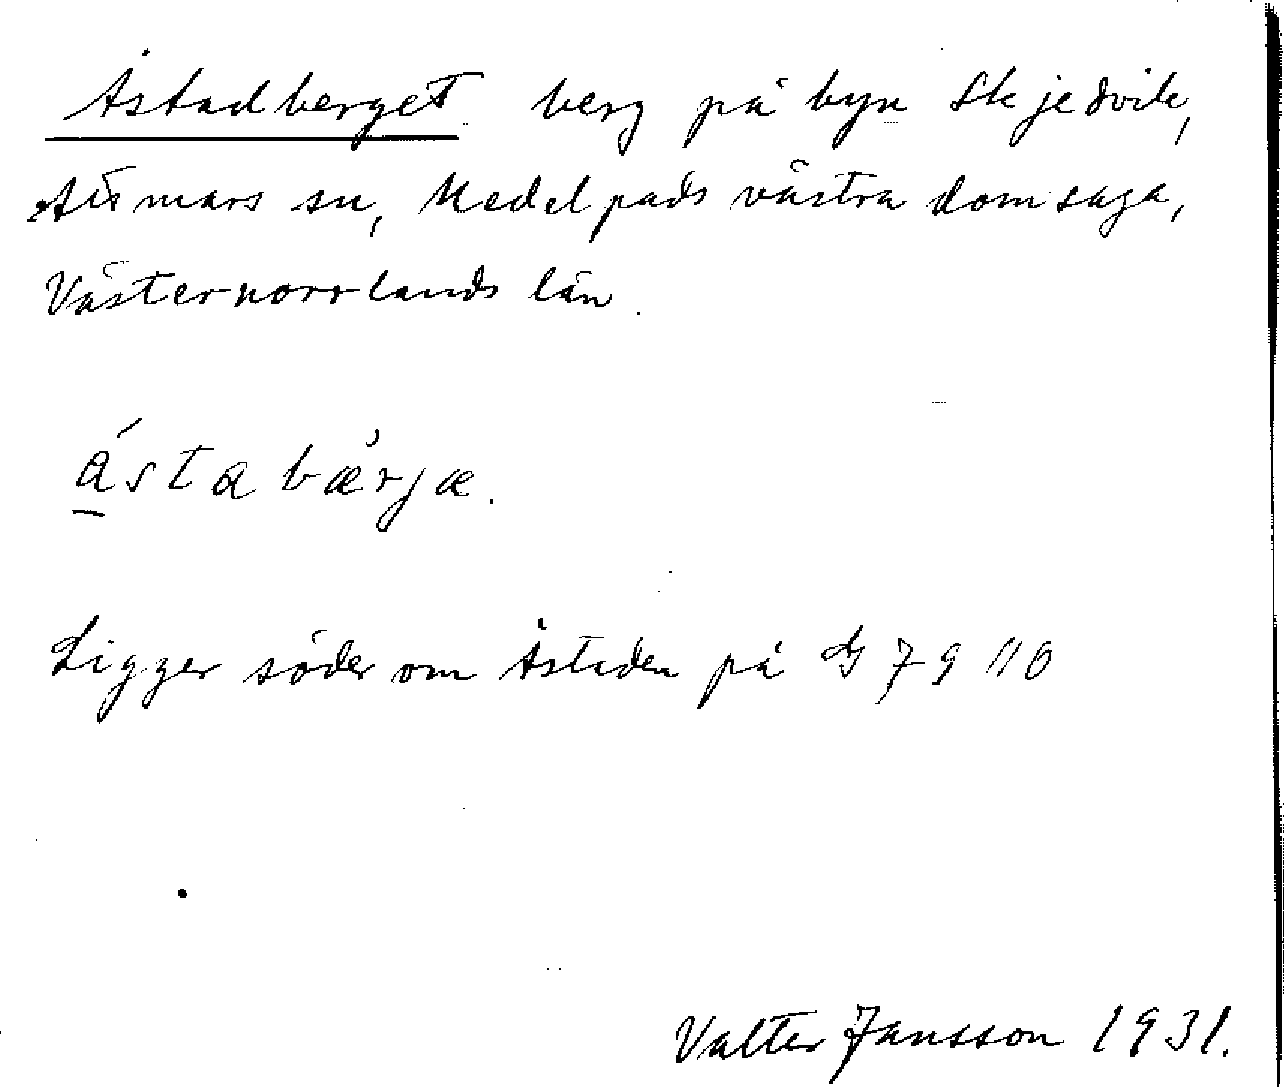 Åstadberget berg på byn Skjedvik,
Attmars sn, Medelpads västra domsaga,
Västernorrlands län.
ástabàrjæ.
Ligger söder om Åstaden på G 79 110
Valter Jansson 1931.